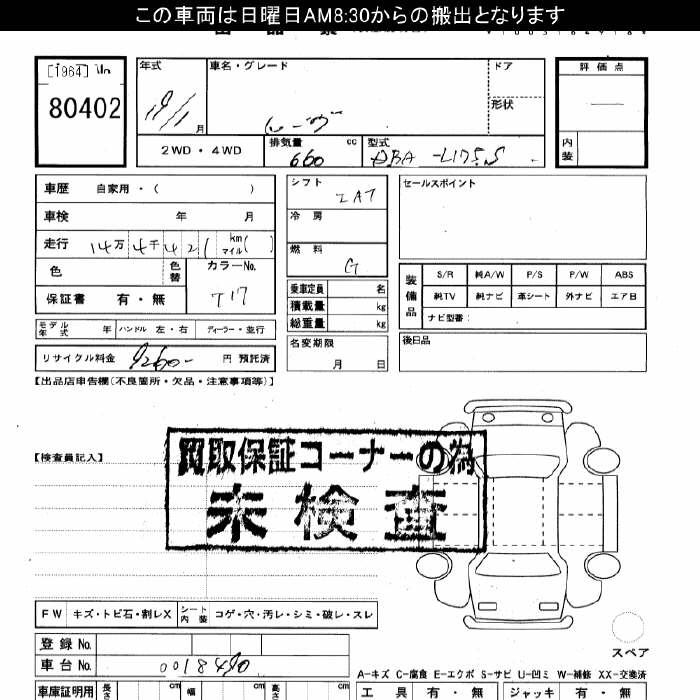 この車両は日曜日AM8:30からの搬出となります
[1964]
80402
年式
車名・グレード
ドア
形状
評価点
月
2WD・4WD
排気量
660
cc
型式
DBA-L175S
内装
車歴 自家用・( )
車検 年 月
走行 14万4千421 km マイル( )
色
色替
カラーNo.
T17
保証書 有・無
モデル年式 年
ハンドル 左・右
ディーラー・並行
リサイクル料金 9260- 円 預託済
シフト
IAT
冷房
燃料
G
乗車定員 名
積載量 kg
総重量 kg
名変期限
月 日
セールスポイント
装備品
S/R 純A/W P/S P/W ABS
純TV 純ナビ 革シート 外ナビ エアB
ナビ型番:
後日品
【出品店申告欄(不良箇所・欠品・注意事項等)】
【検査員記入】
買取保証コーナーの為
未検査
FW キズ・トビ石・割レX
シート内装 コゲ・穴・汚レ・シミ・破レ・スレ
登録No.
車台No. 0018490
車庫証明用
長さ cm
幅 cm
高さ cm
スペア
A-キズ C-腐食 E-エクボ S-サビ U-凹ミ W-補修 XX-交換済
工具 有・無 ジャッキ 有・無